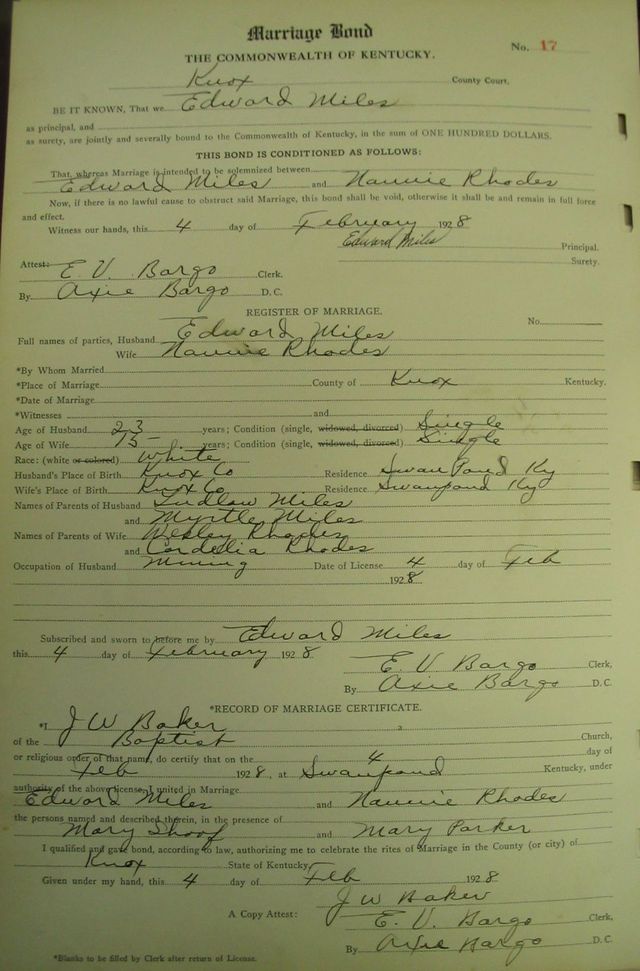 Marriage Bond
No. 17
THE COMMONWEALTH OF KENTUCKY.
Knox County Court.
BE IT KNOWN, That we Edward Miles
as principal, and
as surety, are jointly and severally bound to the Commonwealth of Kentucky, in the sum of ONE HUNDRED DOLLARS.
THIS BOND IS CONDITIONED AS FOLLOWS:
That, whereas Marriage is intended to be solemnized between
Edward Miles and Nannie Rhodes
Now, if there is no lawful cause to obstruct said Marriage, this bond shall be void, otherwise it shall be and remain in full force
and effect.
Witness our hands, this 4 day of February 1928
Edward Miles Principal.
Surety.
Attest: E. V. Bargo Clerk.
By Axie Bargo D. C.
REGISTER OF MARRIAGE.
No.
Full names of parties, Husband Edward Miles
Wife Nannie Rhodes
*By Whom Married
*Place of Marriage County of Knox Kentucky.
*Date of Marriage
*Witnesses and
Age of Husband 23 years; Condition (single, widowed, divorced) Single
Age of Wife years; Condition (single, widowed, divorced) Single
Race: (white or colored) White
Husband's Place of Birth Knox Co Residence Swan Pond Ky
Wife's Place of Birth Knox Co Residence Swanpond Ky
Names of Parents of Husband Ludlow Miles
and Myrtle Miles
Names of Parents of Wife Wesley Rhodes
and Cordelia Rhodes
Occupation of Husband Mining Date of License 4 day of Feb
1928
Subscribed and sworn to before me by Edward Miles
this 4 day of February 1928
E. V Bargo Clerk,
By Axie Bargo D. C.
*RECORD OF MARRIAGE CERTIFICATE.
*I J W Baker
of the Baptist Church,
or religious order of that name, do certify that on the 4 day of
Feb 1928, at Swanpond Kentucky, under
authority of the above license, I united in Marriage
Edward Miles and Nannie Rhodes
the persons named and described therein, in the presence of
Mary and Mary Parker
I qualified and gave bond, according to law, authorizing me to celebrate the rites of Marriage in the County (or city) of
Knox State of Kentucky
Given under my hand, this 4 day of Feb 1928
J W Baker
A Copy Attest: E. V. Bargo Clerk,
By Axie Bargo D. C.
*Blanks to be filled by Clerk after return of License.